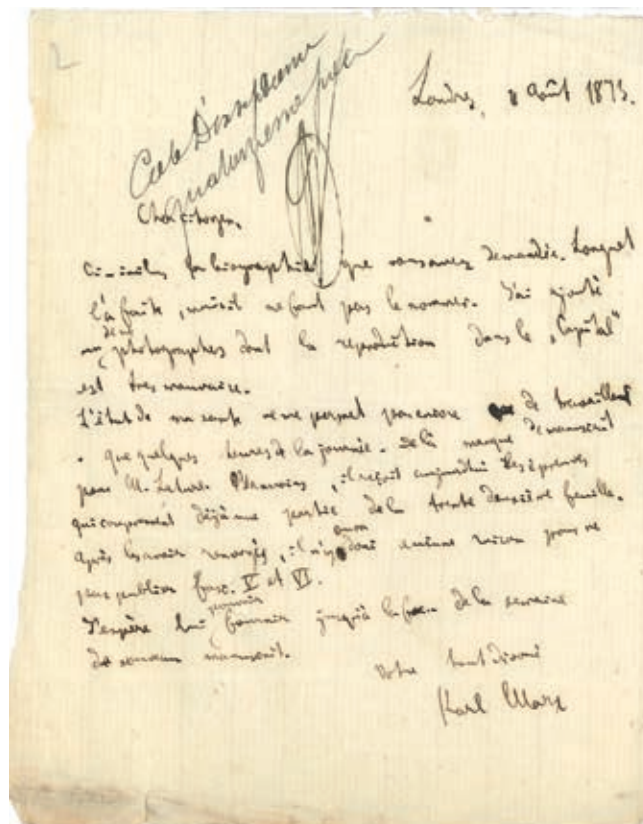 2
Londres, 8 Août 1873.
Cher citoyen,
Ci-inclus la biographie que vous avez demandée. Longuet
l'a faite, mais il ne faut pas le nommer. J'ai ajouté
deux
photographies dont la reproduction dans le „Capital"
est très mauvaise.
L'état de ma santé ne me permet pas encore de travailler
que quelques heures de la journée. De là manque de manuscrit
pour M. Lahure. Néanmoins, il reçoit aujourd'hui les épreuves
qui comprennent déjà une partie de la trente deuxième feuille.
Après les avoir renvoyés, il n'y aucune raison pour ne
pas publier fasc. V et VI.
J'espère lui pouvoir fournir jusqu'à la fin de la semaine
de nouveau manuscrit.
Votre tout dévoué
Karl Marx